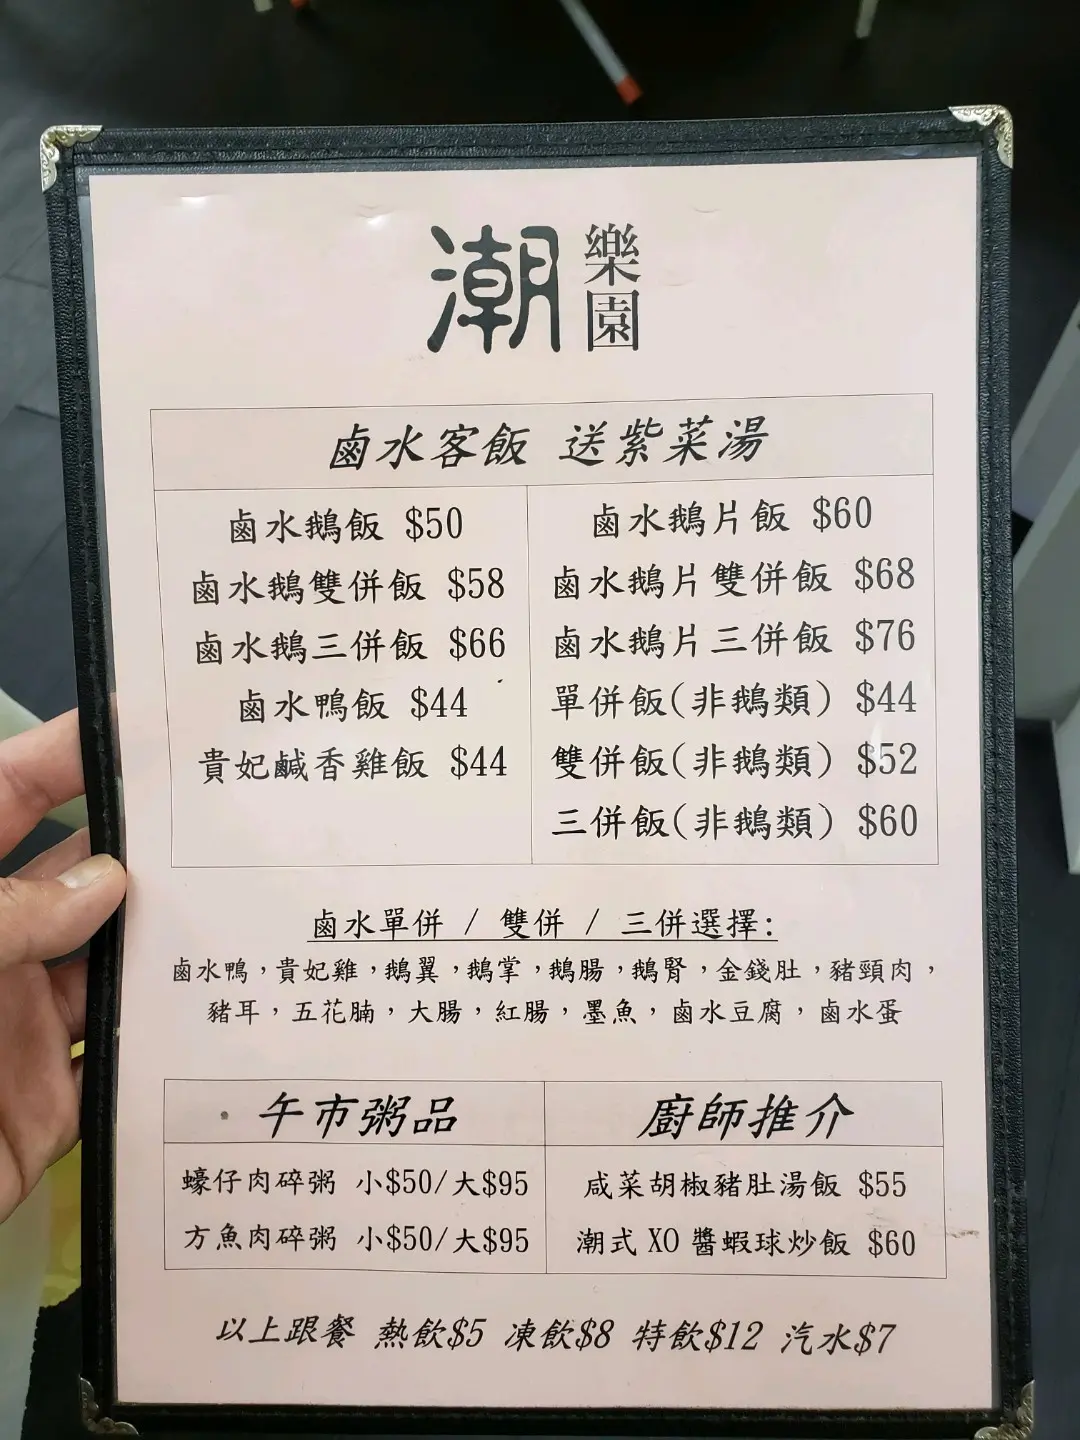 潮樂園
鹵水客飯 送紫菜湯
鹵水鵝飯 $50
鹵水鵝雙併飯 $58
鹵水鵝三併飯 $66
鹵水鴨飯 $44
貴妃鹹香雞飯 $44
鹵水鵝片飯 $60
鹵水鵝片雙併飯 $68
鹵水鵝片三併飯 $76
單併飯(非鵝類) $44
雙併飯(非鵝類) $52
三併飯(非鵝類) $60
鹵水單併 / 雙併 / 三併選擇:
鹵水鴨，貴妃雞，鵝翼，鵝掌，鵝腸，鵝腎，金錢肚，豬頸肉，
豬耳，五花腩，大腸，紅腸，墨魚，鹵水豆腐，鹵水蛋
午市粥品
蠔仔肉碎粥 小$50/大$95
方魚肉碎粥 小$50/大$95
廚師推介
咸菜胡椒豬肚湯飯 $55
潮式 XO 醬蝦球炒飯 $60
以上跟餐 熱飲$5 凍飲$8 特飲$12 汽水$7